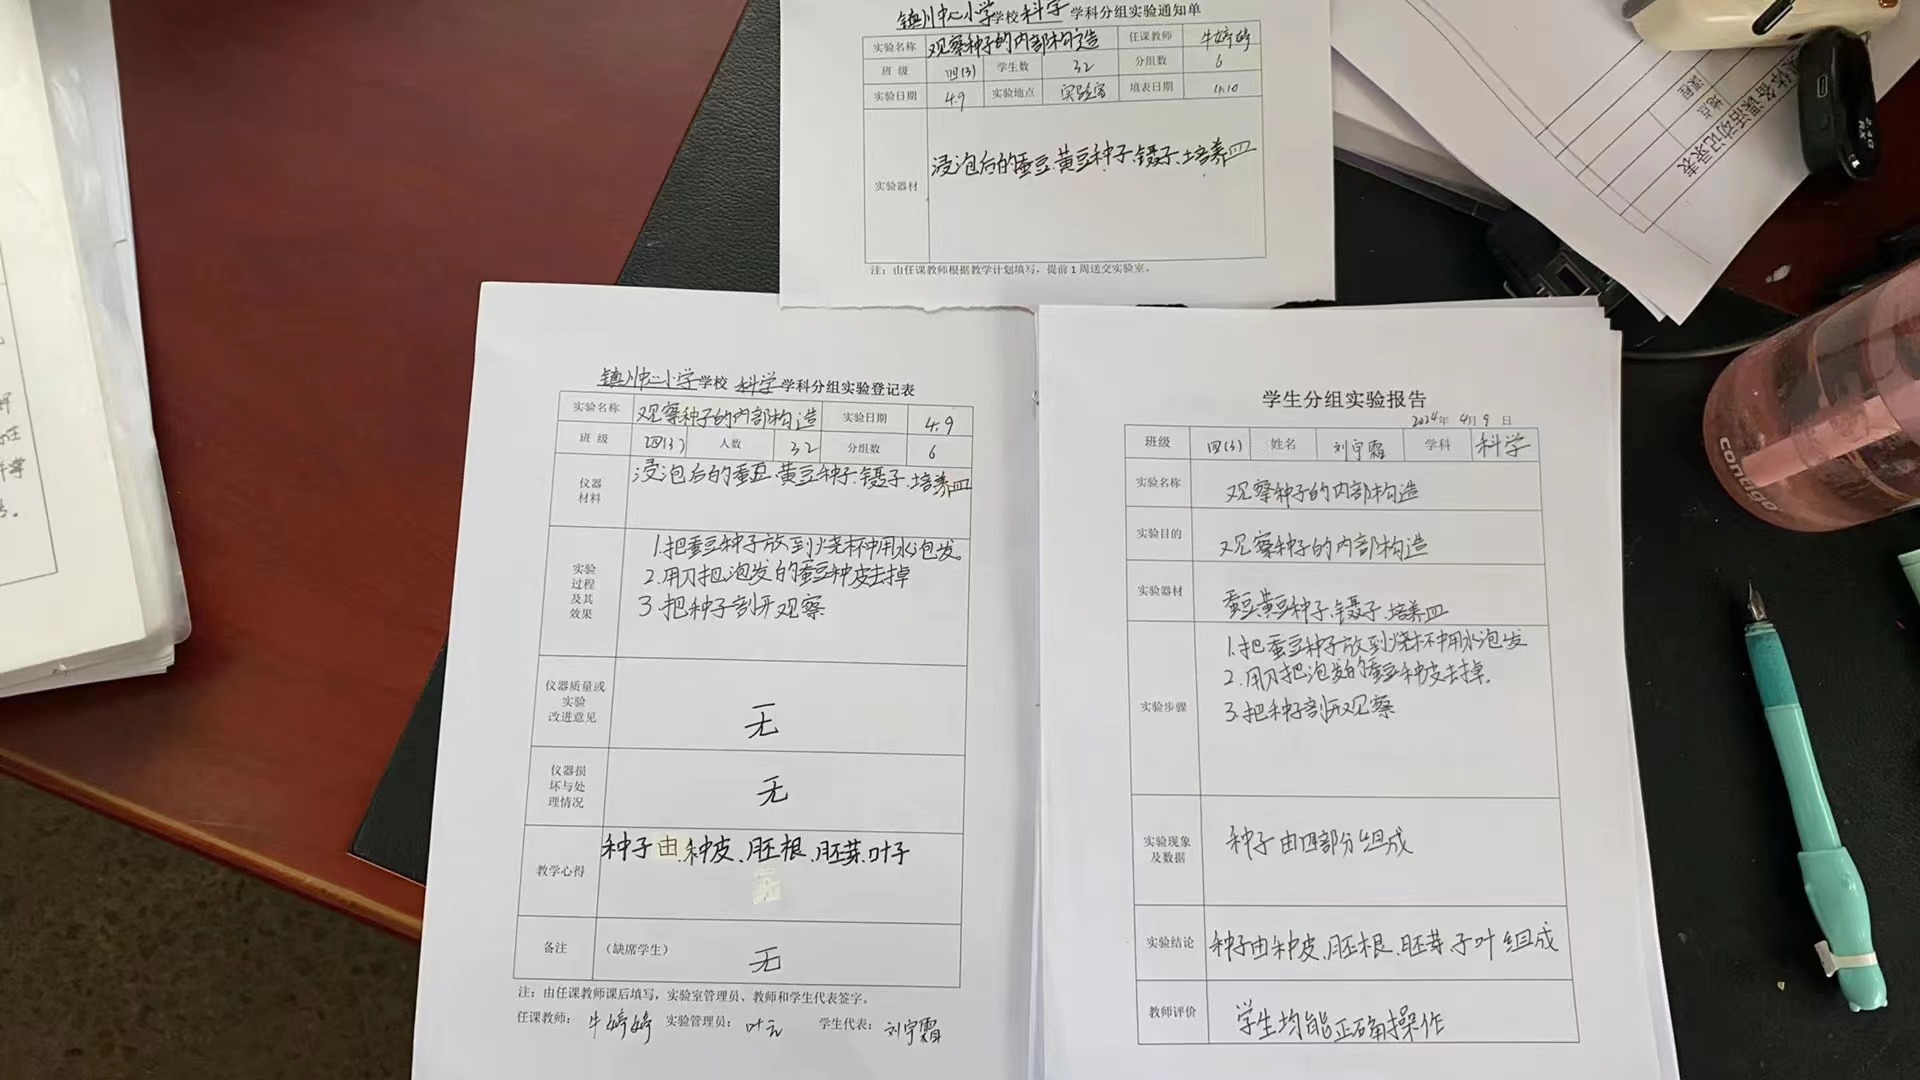 镇川中心小学学校科学学科分组实验通知单
实验名称 观察种子的内部构造 任课教师 牛婷婷
班 级 四(3) 学生数 32 分组数 6
实验日期 4.9 实验地点 实验室 填表日期 4.10
实验器材 浸泡后的蚕豆.黄豆种子.镊子.培养皿
注：由任课教师根据教学计划填写，提前1周送交实验室。
镇川中心小学学校 科学学科分组实验登记表
实验名称 观察种子的内部构造 实验日期 4.9
班 级 四(3) 人数 32 分组数 6
仪器
材料
浸泡后的蚕豆.黄豆种子.镊子.培养皿
实验
过程
及其
效果
1.把蚕豆种子放到烧杯中用水泡发。
2.用刀把泡发的蚕豆种皮去掉
3.把种子剖开观察
仪器质量或
实验
改进意见
无
仪器损
坏与处
理情况
无
教学心得 种子由.种皮、胚根、胚芽.叶子
备注 （缺席学生） 无
注：由任课教师课后填写，实验室管理员、教师和学生代表签字。
任课教师： 牛婷婷 实验管理员： 学生代表： 刘宇霜
学生分组实验报告
2024年 4月 9 日
班级 四(3) 姓名 刘宇霜 学科 科学
实验名称 观察种子的内部构造
实验目的 观察种子的内部构造
实验器材 蚕豆.黄豆种子.镊子.培养皿
实验步骤
1.把蚕豆种子放到烧杯中用水泡发
2.用刀把泡发的蚕豆种皮去掉.
3.把种子剖开观察
实验现象
及数据
种子由四部分组成
实验结论 种子由种皮、胚根、胚芽.子叶组成
教师评价 学生均能正确操作
体备课活动记录表
地点
课程
contigo